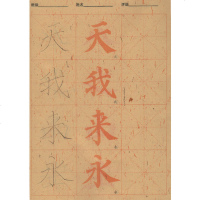 天 天
我 我
来 来
永 永